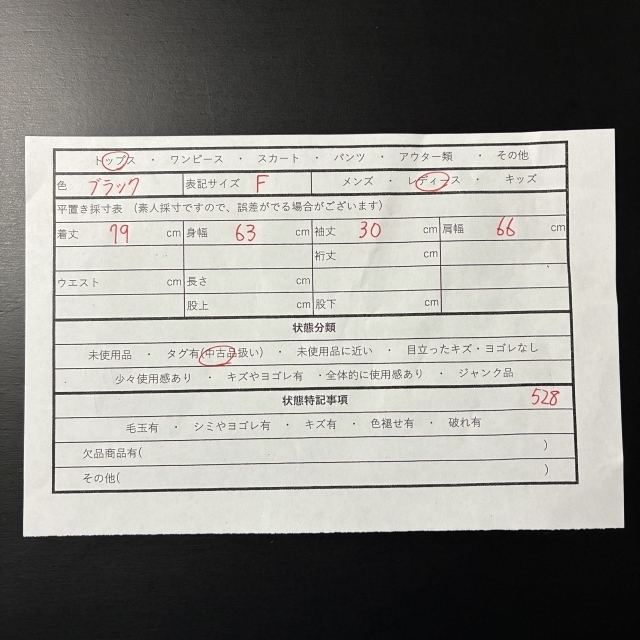 トップス ・ ワンピース ・ スカート ・ パンツ ・ アウター類 ・ その他
色 ブラック 表記サイズ F メンズ ・ レディース ・ キッズ
平置き採寸表 (素人採寸ですので、誤差がでる場合がございます)
着丈 79 cm 身幅 63 cm 袖丈 30 cm 肩幅 66 cm
裄丈 cm
ウエスト cm 長さ cm
股上 cm 股下 cm
状態分類
未使用品 ・ タグ有(中古品扱い) ・ 未使用品に近い ・ 目立ったキズ・ヨゴレなし
少々使用感あり ・ キズやヨゴレ有 ・全体的に使用感あり ・ ジャンク品
状態特記事項 528
毛玉有 ・ シミやヨゴレ有 ・ キズ有 ・ 色褪せ有 ・ 破れ有
欠品商品有( )
その他( )